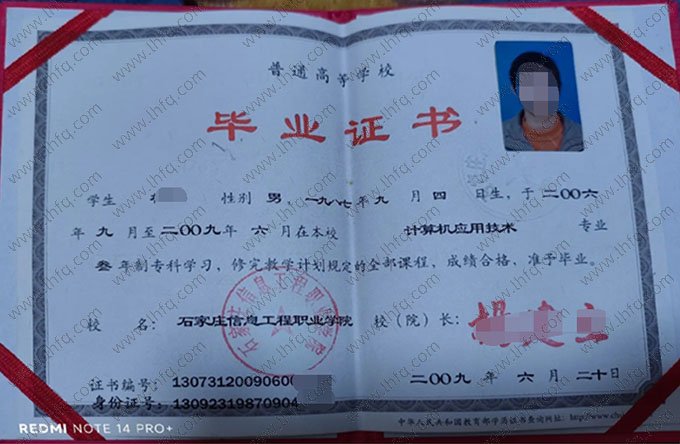 普通高等学校
毕业证书
学生 性别 男，一九八七年九月四日生，于二〇〇六
年九月至二〇〇九年六月在本校 计算机应用技术 专业
叁年制专科学习，修完教学计划规定的全部课程，成绩合格，准予毕业。
校 名：石家庄信息工程职业学院 校（院）长：
石家庄信息工程职业学院
证书编号：13073120090600
二〇〇九年六月二十日
身份证号：13092319870904
中华人民共和国教育部学历证书查询网址：http://www.
REDMI NOTE 14 PRO+
www.lhfq.com